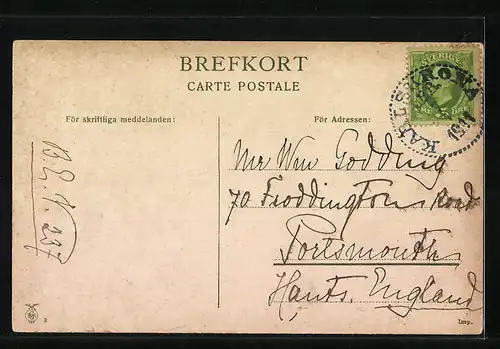 BREFKORT
CARTE POSTALE
SVERIGE
KARLSKRONA
1911
För skriftliga meddelanden:
För Adressen:
Mr Wm Godding
70 Froddington Road
Portsmouth
Hants, England
B.E.P. 237
Imp.